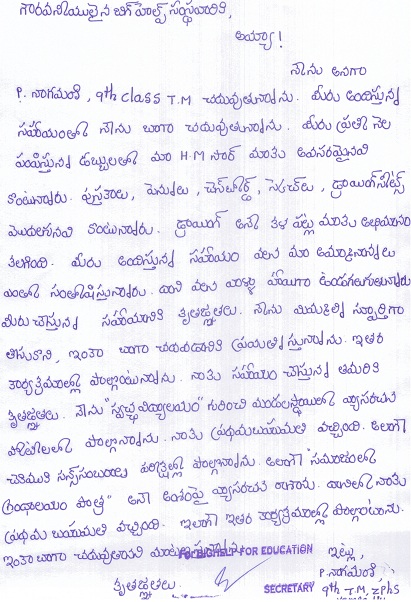 గౌరవనీయులైన బిగ్ హెల్ప్ సంస్థవారికి,
అయ్యా!
నేను అనగా
P. నాగమణి, 9th class T.M చదువుతున్నాను. మీరు అందిస్తున్న
సహాయంతో నేను బాగా చదువుతున్నాను. మీరు ప్రతి నెల
పంపిస్తున్న డబ్బులతో మా H.M సార్ మాకు అవసరమైనవి
కొంటున్నారు. పుస్తకాలు, పెన్నులు, చెస్‌బోర్డ్, స్కెచ్‌లు, డ్రాయింగ్‌షీట్స్
మొదలగునవి కొంటున్నారు. డ్రాయింగ్ అనే కళ పట్ల మాకు అభిమానం
కలిగింది. మీరు అందిస్తున్న సహాయం వలన మా అమ్మానాన్నలు
ఎంతో సంతోషిస్తున్నారు. దాని వలన వాళ్లు హాయిగా ఉండగలుగుతున్నారు
మీరు చేస్తున్న సహాయానికి కృతజ్ఞతలు. నేను మిమ్మల్ని స్ఫూర్తిగా
తీసుకొని, ఇంకా బాగా చదవడానికి ప్రయత్నిస్తున్నాను. ఇతర
కార్యక్రమాల్లో పాల్గొంటున్నాను. నాకు సహాయం చేస్తున్న మీకు
కృతజ్ఞతలు. నేను "స్వచ్ఛ విద్యాలయం" గురించి మండలస్థాయిలో వ్యాసరచన
పోటీలలో పాల్గొన్నాను. నాకు ప్రథమ బహుమతి వచ్చింది. అలాగే
చెకుముకి సైన్స్ సంబరాలు పరీక్షల్లో పాల్గొన్నాను. అలాగే "సమాజంలో
గ్రంథాలయం పాత్ర" అనే అంశంపై వ్యాసరచన రాశాను. దానిలో నాకు
ప్రథమ బహుమతి వచ్చింది. ఇలాగే ఇతర కార్యక్రమాల్లో పాల్గొంటాను.
ఇంకా బాగా చదువుతానని
For BIGHELP FOR EDUCATION
ఇట్లు,
కృతజ్ఞతలు.
P. నాగమణి
SECRETARY
9th T.M, ZPHS